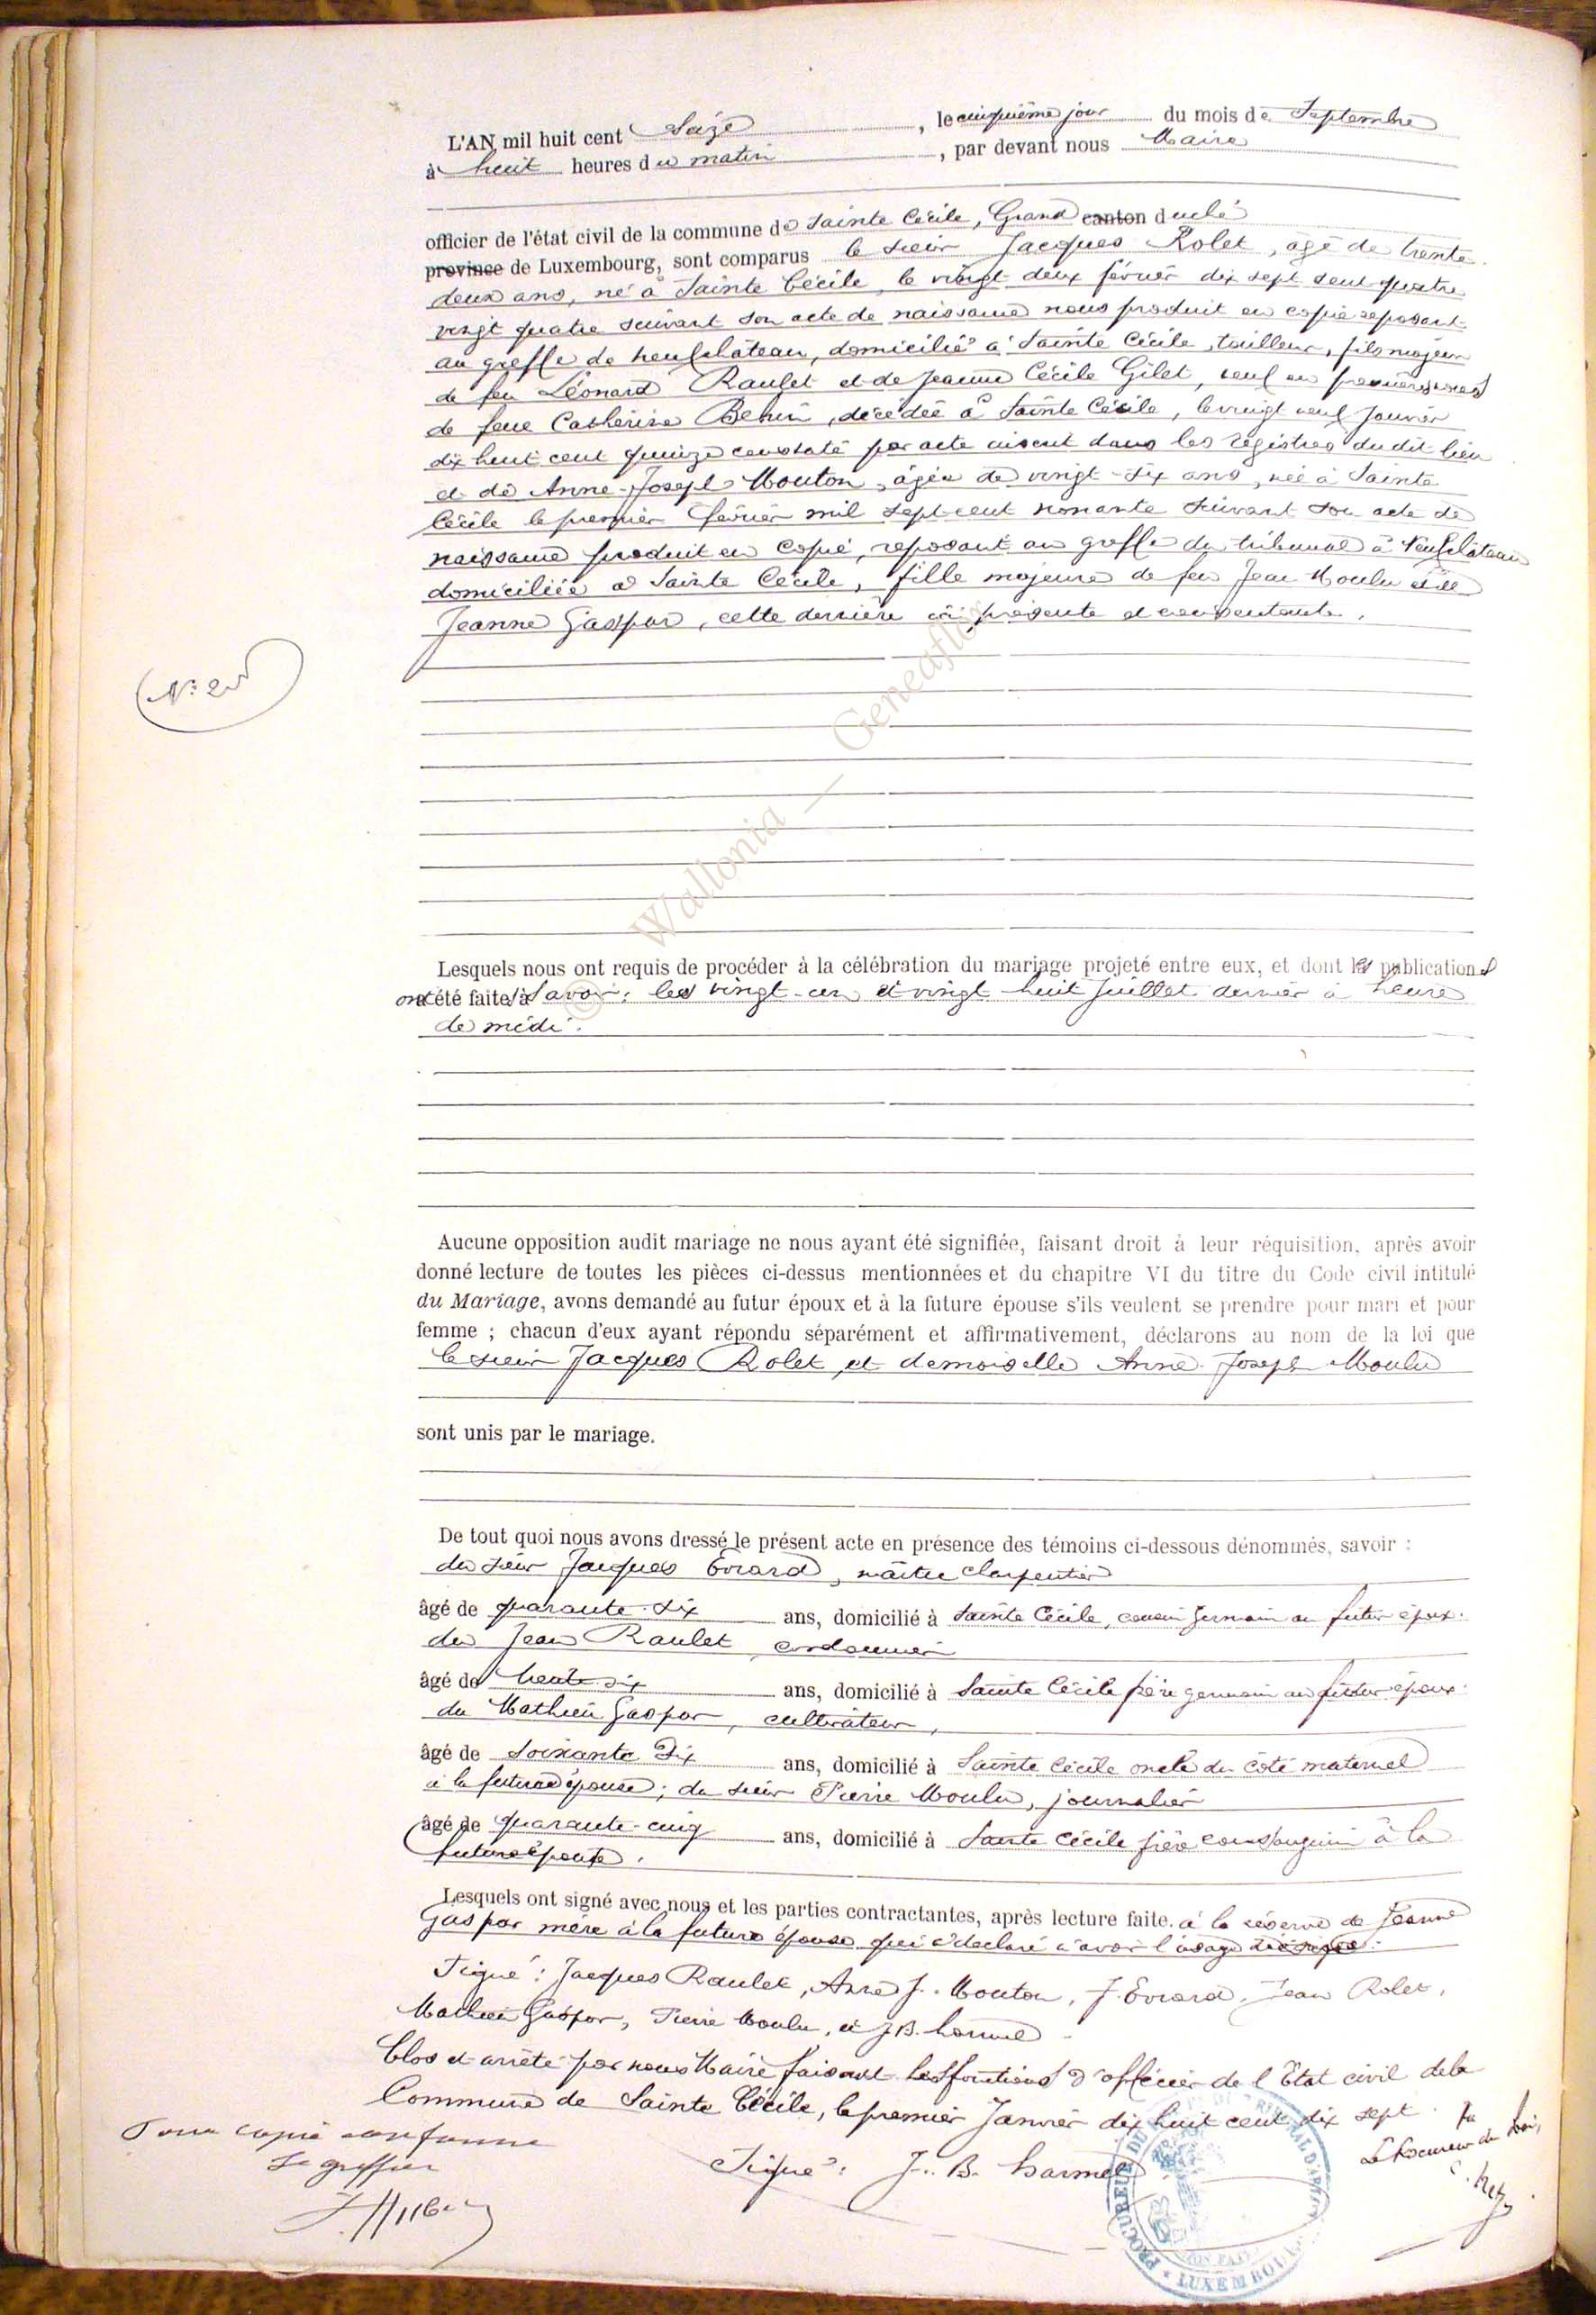 L'AN mil huit cent Seize, le cinquième jour du mois de Septembre
à huit heures du matin, par devant nous Maire
officier de l'état civil de la commune de Sainte Cécile, Grand canton duché
province de Luxembourg, sont comparus le sieur Jacques Rolet, agé de trente
deux ans, né à Sainte Cécile, le vingt deux février dix sept cent quatre
vingt quatre suivant son acte de naissance nous produit en copie reposant
au greffe de neufchâteau, domicilié à Sainte Cécile, tailleur, fils majeur
de feu Léonard Raulet et de Jeanne Cécile Gilet, veuf en premières noces
de feue Catherine, décédée à Sainte Cécile, le vingt neuf Janvier
dix huit cent quinze constaté par acte inscrit dans les régistres du dit lieu
et de Anne-Joseph Mouton, âgée de vingt-six ans, née à Sainte
Cécile le premier février mil sept-cent nonante suivant son acte de
naissance produit en copie, reposant au greffe du tribunal à Neufchâteau
domiciliée à Sainte Cécile, fille majeure de feu Jean Moulu et de
Jeanne Gaspar, cette dernière ici présente et consentante.
N° 2
© Wallonia — Geneaflor
Lesquels nous ont requis de procéder à la célébration du mariage projeté entre eux, et dont les publications
ont été faites à Savoir: les vingt-un et vingt-huit Juillet dernier à heure
de midi.
Aucune opposition audit mariage ne nous ayant été signifiée, faisant droit à leur réquisition, après avoir
donné lecture de toutes les pièces ci-dessus mentionnées et du chapitre VI du titre du Code civil intitulé
du Mariage, avons demandé au futur époux et à la future épouse s'ils veulent se prendre pour mari et pour
femme ; chacun d'eux ayant répondu séparément et affirmativement, déclarons au nom de la loi que
le sieur Jacques Rolet, et demoiselle Anne-Joseph Moulu
sont unis par le mariage.
De tout quoi nous avons dressé le présent acte en présence des témoins ci-dessous dénommés, savoir :
du sieur Jacques Evrard, maître charpentier
âgé de quarante-six ans, domicilié à Sainte Cécile, cousin germain au futur époux.
du Jean Raulet, cordonnier
âgé de trente-six ans, domicilié à Sainte Cécile frère germain au futur époux.
du Mathieu Gaspar, cultivateur,
âgé de soixante Dix ans, domicilié à Sainte Cécile oncle du côté maternel
à la future épouse; du sieur Pierre Moulu, journalier
âgé de quarante-cinq ans, domicilié à Sainte Cécile frère consanguin à la
future épouse.
Lesquels ont signé avec nous et les parties contractantes, après lecture faite. à la réserve de Jeanne
Gaspar mère à la future épouse qui a déclaré n'avoir l'usage
Signé : Jacques Raulet, Anne J. Mouton, J. Evrard, Jean Rolet,
Mathieu Gaspar, Pierre Moulu, et J.B. harmel
Clos et arrêté par nous Maire faisant les fonctions d'officier de l'Etat civil de la
Commune de Sainte Cécile, le premier Janvier dix huit cent dix sept.
Signé : J. B. harmel
Pour copie conforme
Le greffier
Vu
Le Procureur du Roi,
PROCUREUR DU TRIBUNAL D'ARLON
LUXEMBOURG